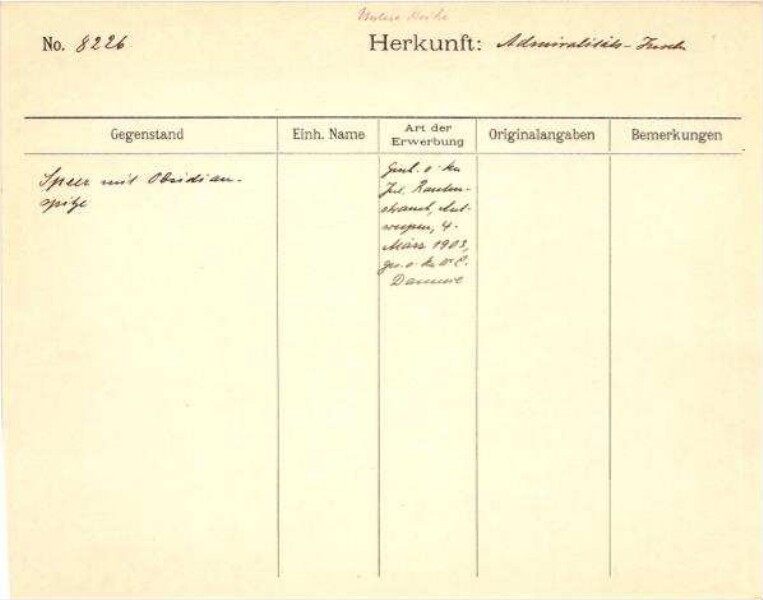 No. 8226
Herkunft: Admiralitäts-Inseln
Gegenstand
Einh. Name
Art der
Erwerbung
Originalangaben
Bemerkungen
Speer mit Obsidian-
spitze
Gesch.
Jul. Rauten-
strauch, Ant-
werpen, 4.
März 1903,
C.